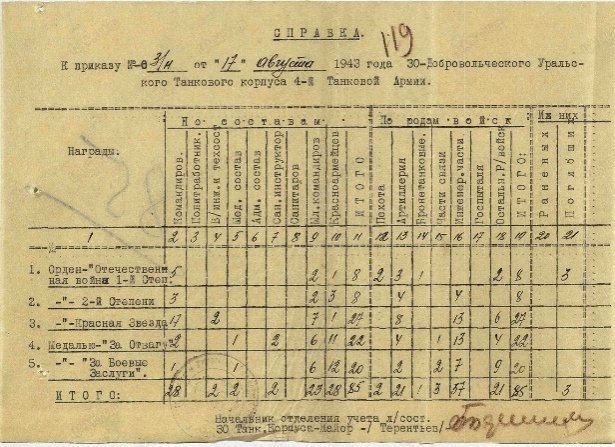 СПРАВКА.
119
К приказу №-0 31/н от "17" августа 1943 года 30-Добровольческого Уральс-
кого Танкового корпуса 4-й Танковой Армии.
Награды. По составам По родам войск Из них
Командиров. Политработник. В/инж.и техсост Мед. состав Адм. состав Сан.инструктор Санитаров Мл.командиров Красноармейцев ИТОГО Пехота Артиллерия Бронетанковые. Части связи Инженер.части Госпиталя Остальн.Р/войск ИТОГО: Раненых Погибших
1 2 3 4 5 6 7 8 9 10 11 12 13 14 15 16 17 18 19 20 21
1. Орден-"Отечествен- 5 2 1 8 2 3 1 2 8 3
ная война 1-й Степ.
2. -"- 2-й Степени 3 2 3 8 4 4 8
3. -"-Красная Звезда 17 2 7 1 27 8 13 6 27
4. Медалью-"За Отвагу" 2 1 2 6 11 22 4 1 13 4 22
5. -"- "За Боевые 1 1 6 12 20 2 2 7 9 20
Заслуги".
ИТОГО: 28 2 2 2 23 28 85 2 21 1 3 37 21 85 3
Начальник отделения учета л/сост.
30 Танк.Корпуса-Майор -/ Терентьев/